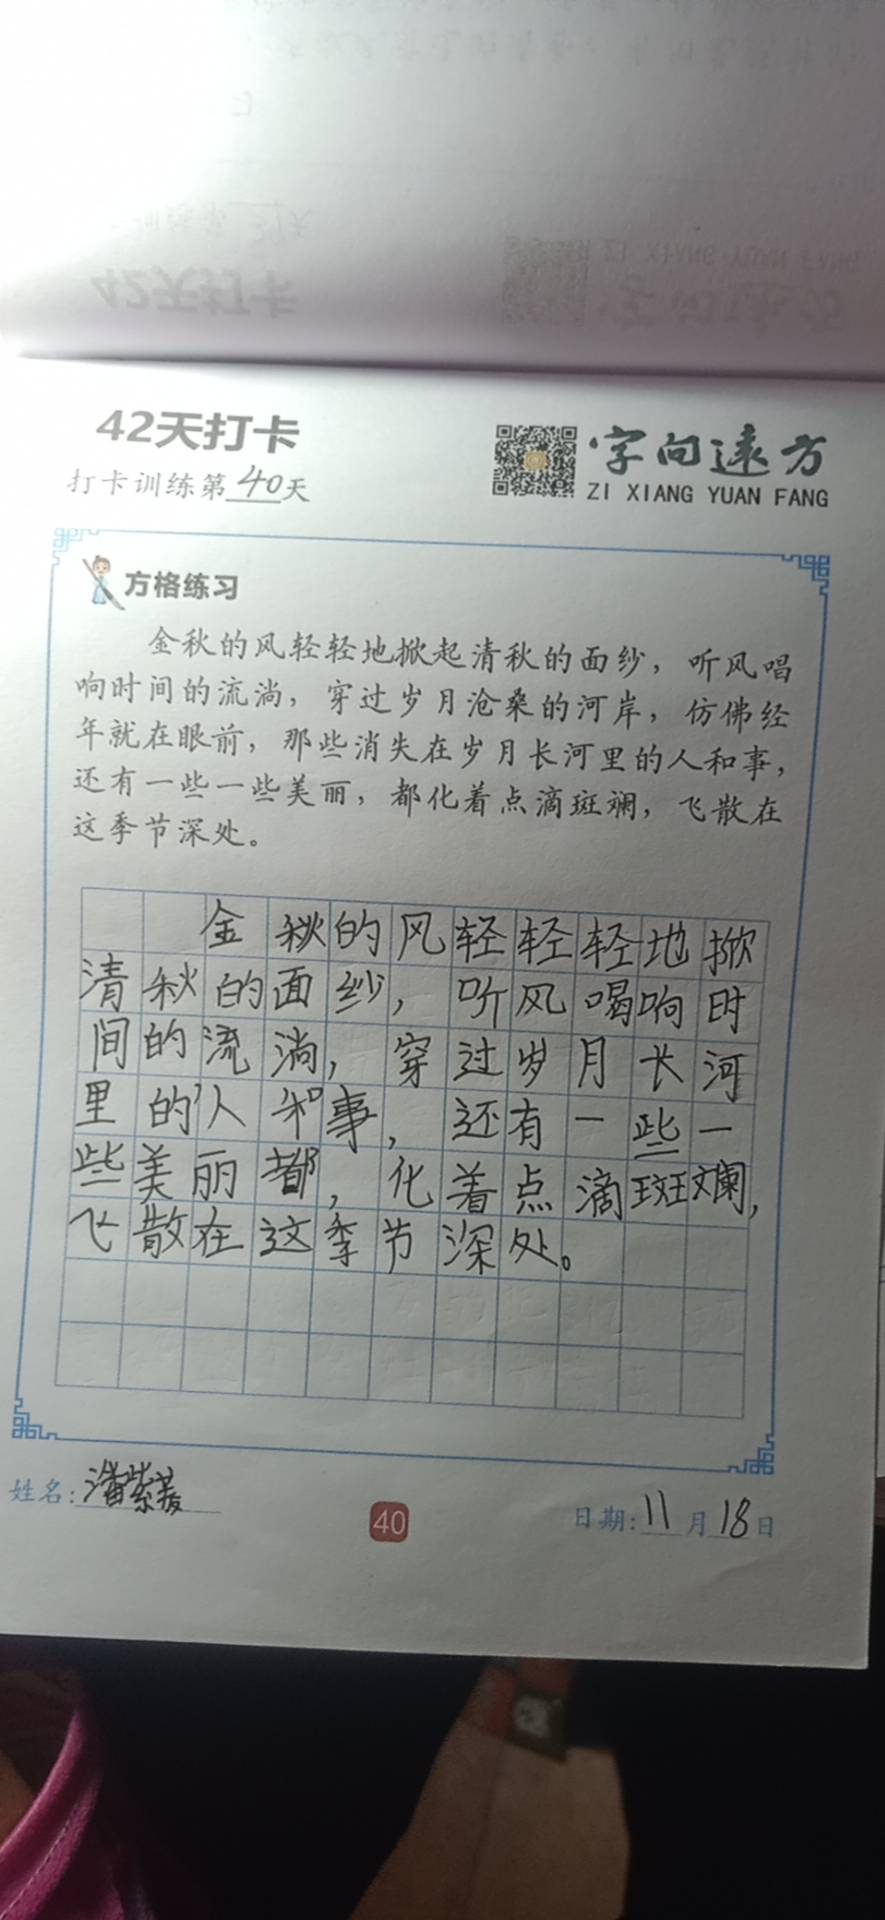 42天打卡
字向远方
打卡训练第40天
ZI XIANG YUAN FANG
方格练习
金秋的风轻轻地掀起清秋的面纱，听风唱
响时间的流淌，穿过岁月沧桑的河岸，仿佛经
年就在眼前，那些消失在岁月长河里的人和事，
还有一些一些美丽，都化着点滴斑斓，飞散在
这季节深处。
金秋的风轻轻轻地掀
清秋的面纱，听风喝响时
间的流淌，穿过岁月长河
里的人和事，还有一些一
些美丽都，化着点滴斑斓，
飞散在这季节深处。
姓名：潘紫媛
40
日期：11月18日